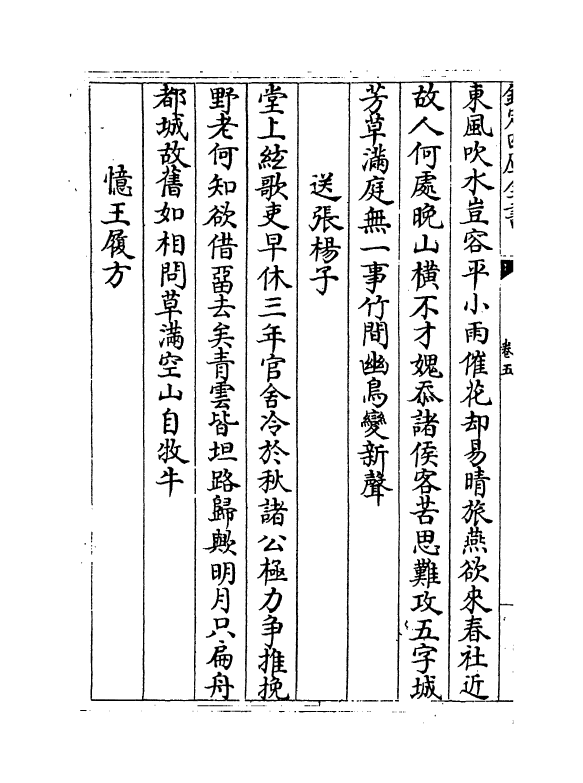 欽定四庫全書
卷五
東風吹水豈容平小雨催花却易晴旅燕欲來春社近
故人何處晚山橫不才媿忝諸侯客苦思難攻五字城
芳草滿庭無一事竹間幽鳥變新聲
送張楊子
堂上絃歌吏早休三年官舍冷於秋諸公極力争推挽
野老何知欲借留去矣青雲皆坦路歸歟明月只扁舟
都城故舊如相問草滿空山自牧牛
憶王履方